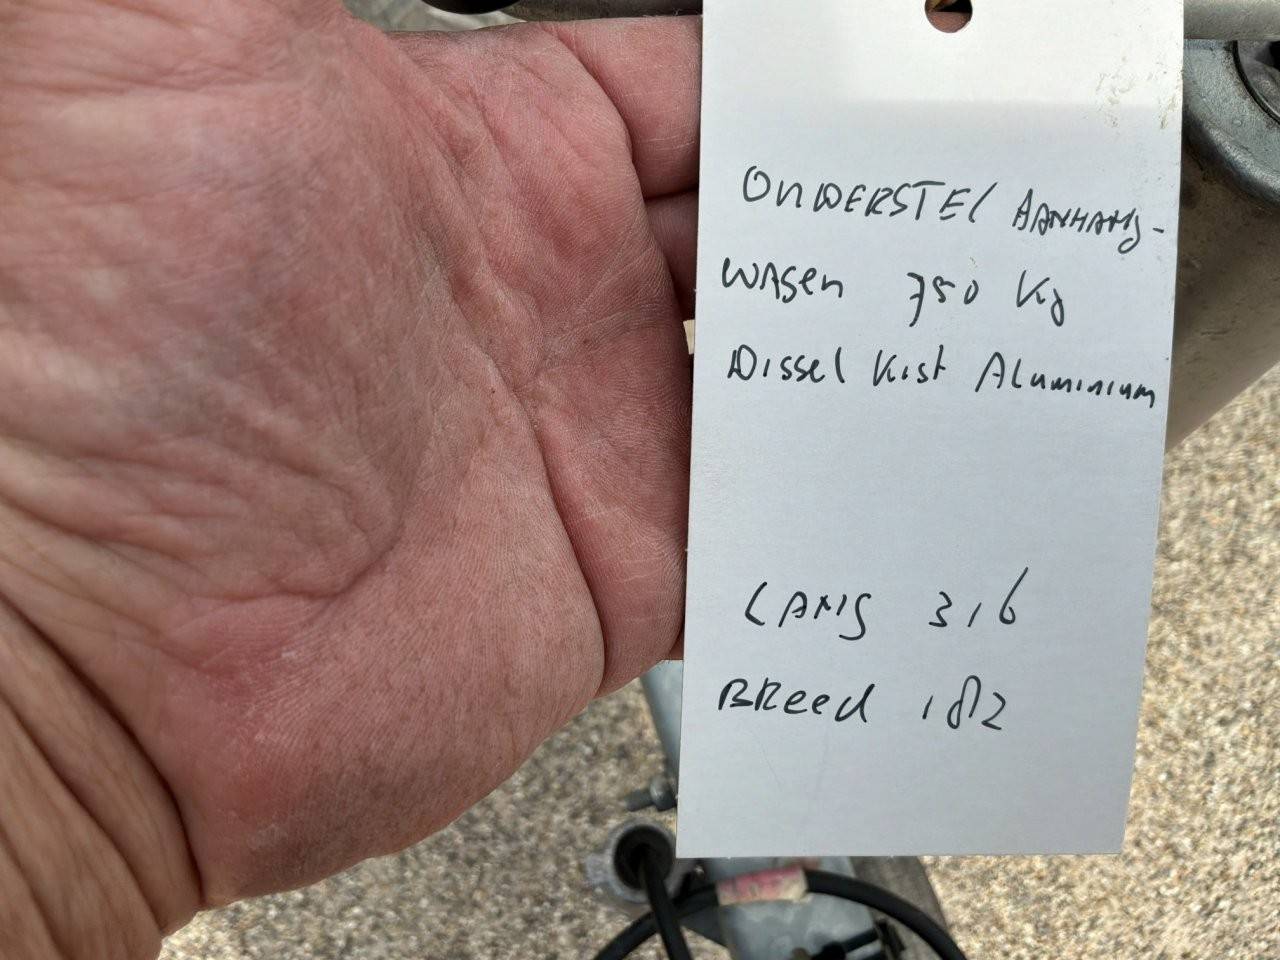 ONDERSTEL AANHANG-
WAGEN 750 Kg
Dissel Kist Aluminium
LANG 316
BReed 182